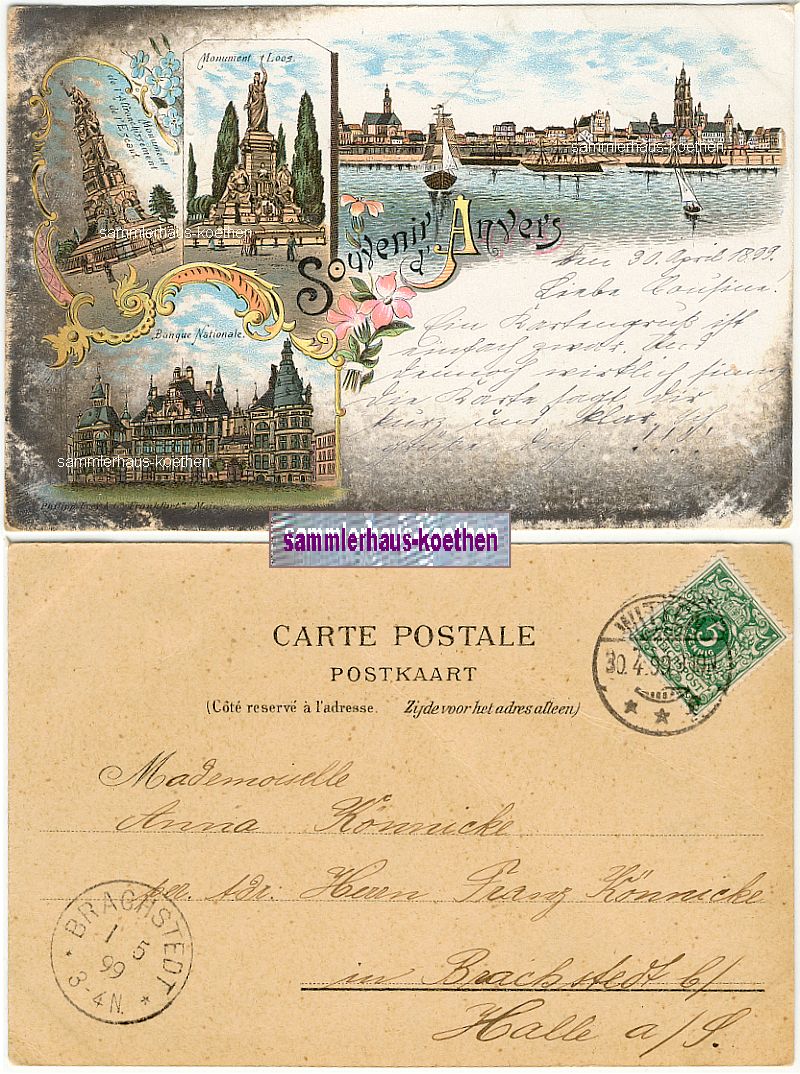 Monument
de l'Affranchissement
de l'Escaut.
Monument Loos.
sammlerhaus-koethen
sammlerhaus-koethen
sammlerhaus-koethen
Souvenir
d'Anvers
Den 30. April 1899.
Liebe Cousine.
Ein Kartengruß ist
einfach zwar. Und
dennoch wirklich
die Karte sagt dir
kurz und klar, ich
Banque Nationale.
sammlerhaus-koethen
Frankfurt a. Main
sammlerhaus-koethen
CARTE POSTALE
POSTKAART
(Côté reservé à l'adresse. Zijde voor het adres alleen)
30.4.99
5
Mademoiselle
Anna Könnicke
per. Adr. Herrn Franz Könnicke
in Brachstedt b/
Halle a/S.
BRACHSTEDT
1 5
99
3-4N.